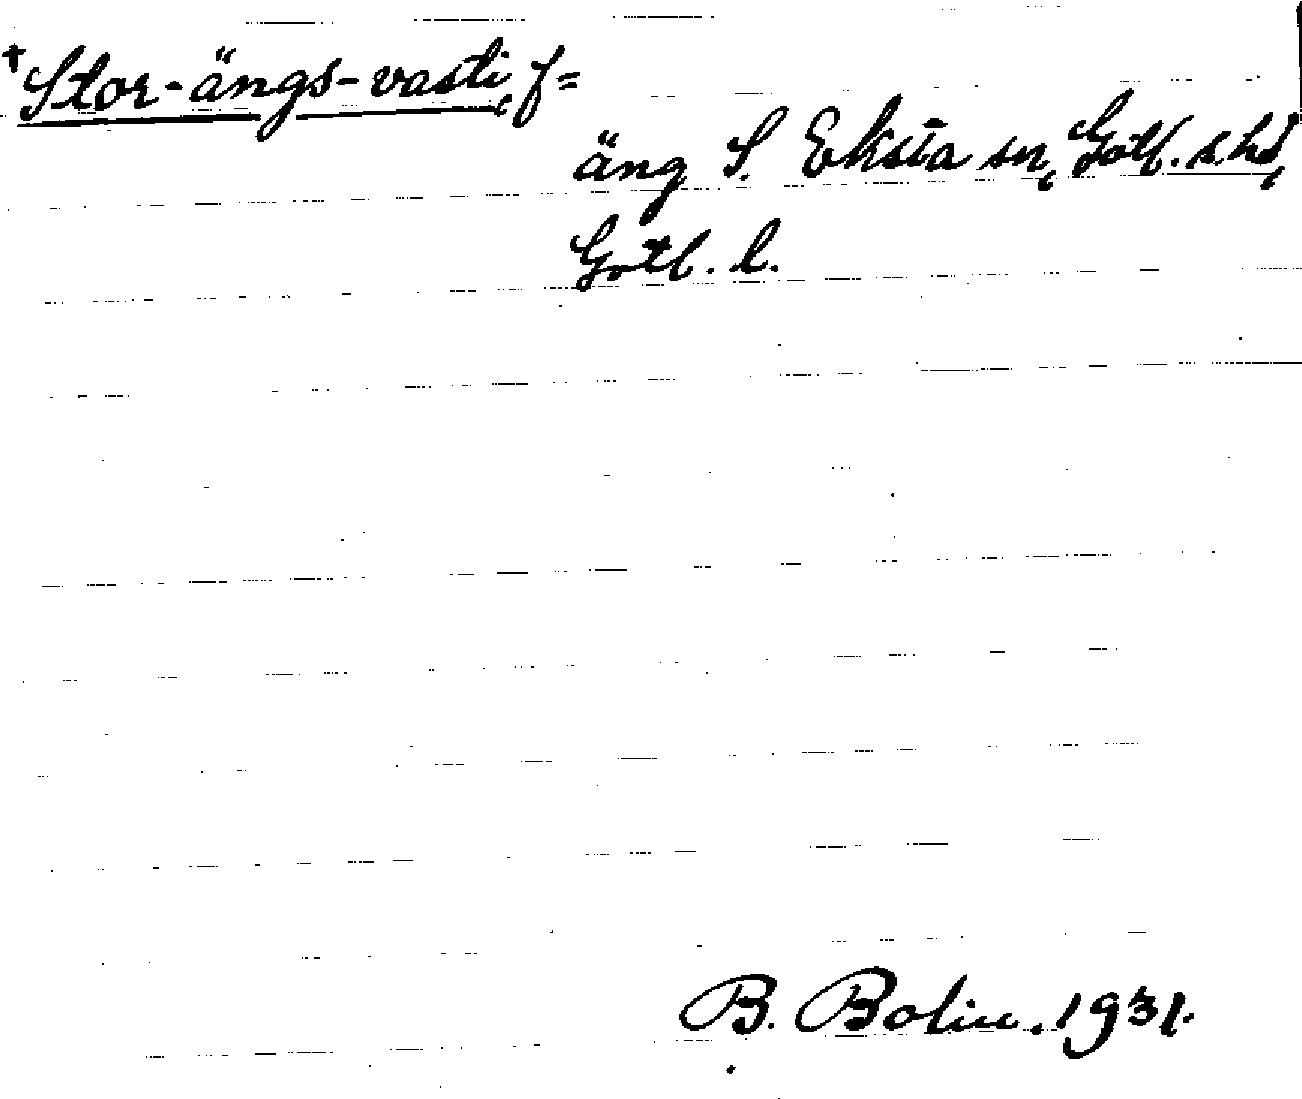 + Stor-ängs-vasti, f=
äng S. Eksta sn, Gotl. s. hd,
Gotl. l.
B. Bolin. 1931.